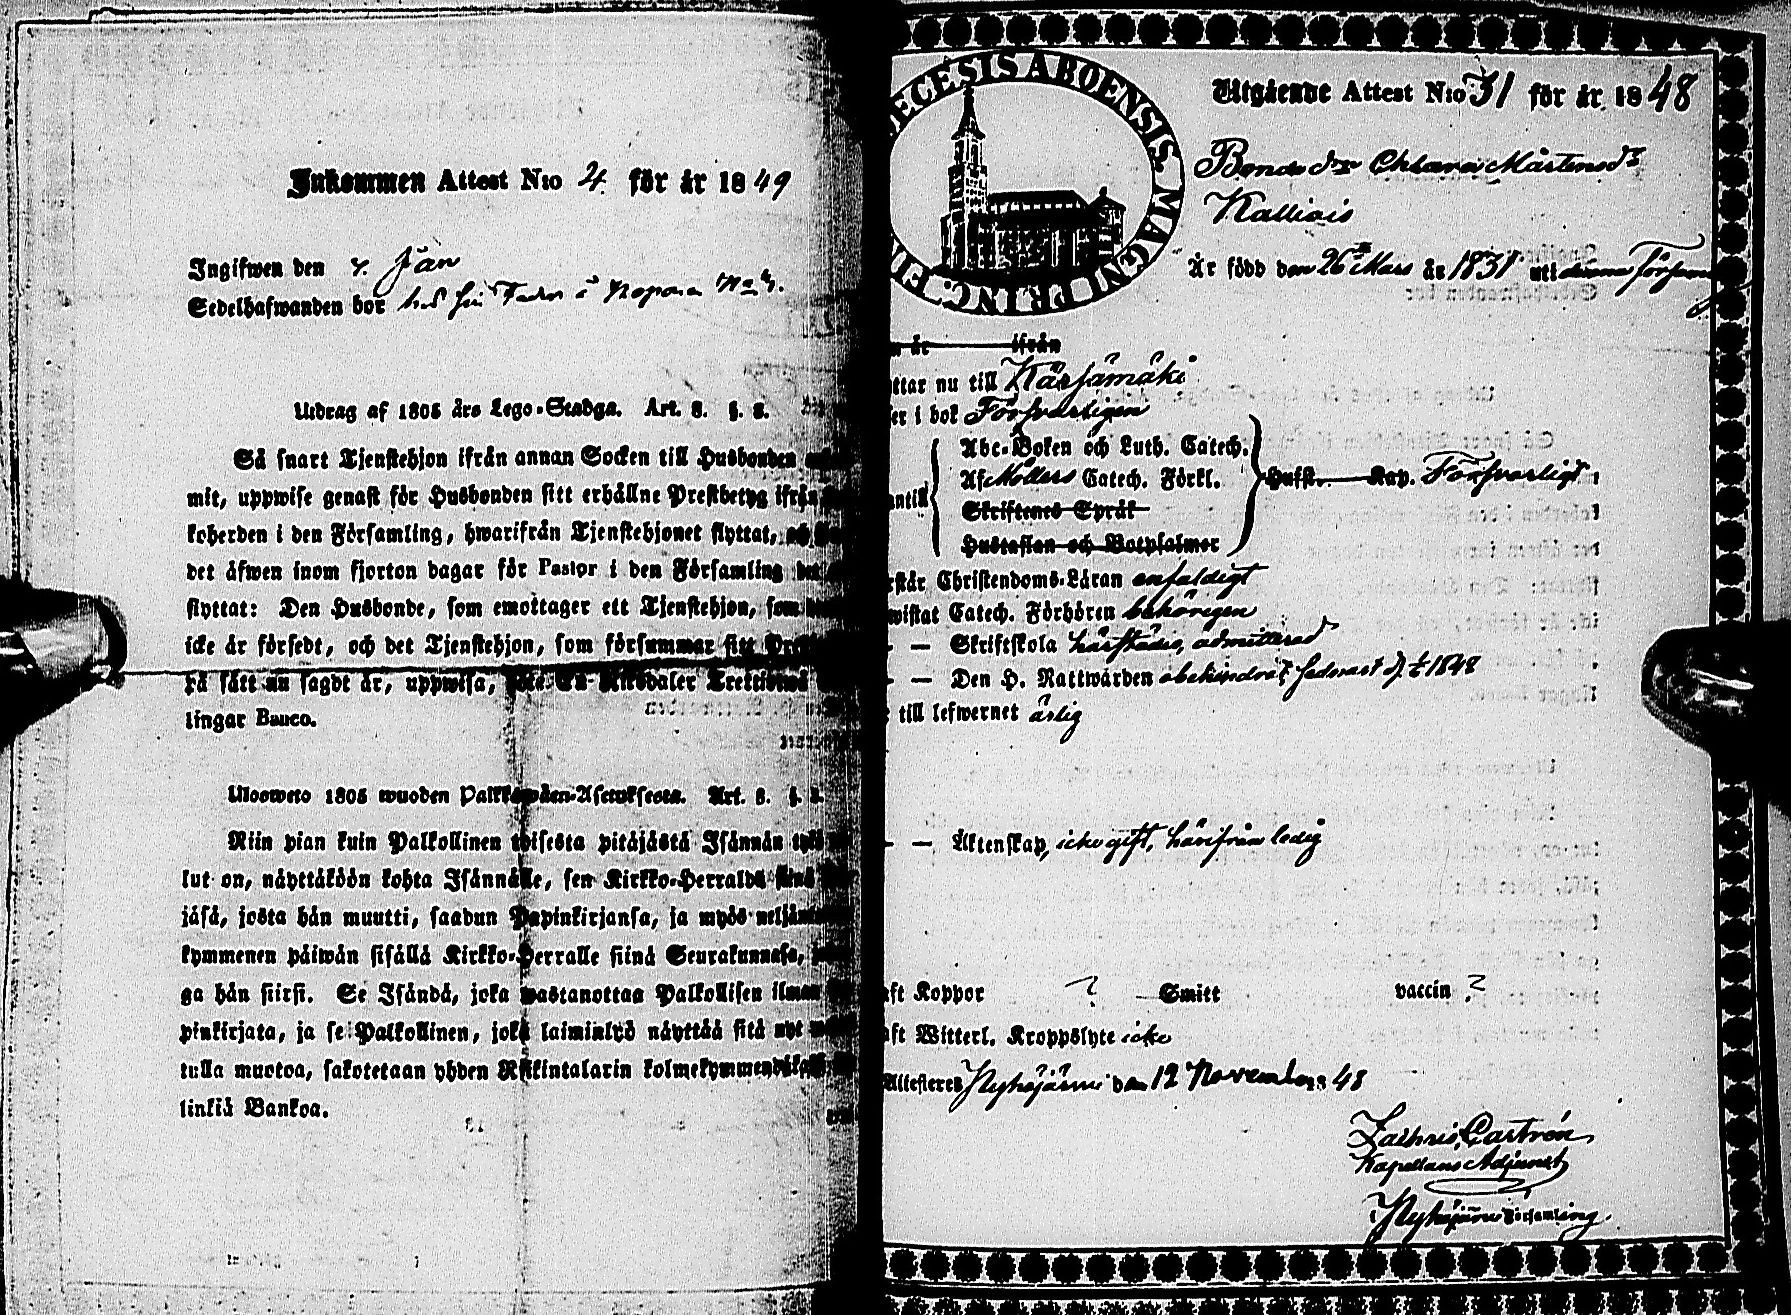 Inkommen Attest N:o 4. för år 1849
Ingifwen den 4. Jan
Sedelhafwanden bor hos sin Fader å
Utdrag af 1805 års Lego-Stadga. Art. 8. §. 8.
Så snart Tjenstehjon ifrån annan Socken till Husbonden
mit, uppwise genast för Husbonden sitt erhållne Prestbetyg ifrån
koherden i den Församling, hwarifrån Tjenstehjonet flyttat,
det äfwen inom fjorton dagar för Pastor i den Församling
flyttat: Den Husbonde, som emottager ett Tjenstehjon, som
icke är försedt, och det Tjenstehjon, som försummar sitt
på sätt nu sagdt är, uppwisa,
lingar Banco.
Ulosweto 1805 wuoden Palkkawäen-Asetuksesta. Art. 8. §.
Niin pian kuin Palkollinen toisesta pitäjästä Isännän työ
lut on, näyttäköön kohta Isännälle, sen Kirkko-Herralda siinä
jäsä, josta hän muutti, saadun Papinkirjansa, ja myös neljän
kymmenen päiwän sisällä Kirkko-Herralle siinä Seurakunnasa,
ga hän siirsi. Se Isändä, joka wastanottaa Palkollisen ilman
pinkirjata, ja se Palkollinen, joka laiminlyö näyttää sitä nyt
tulla muotoa, sakotetaan yhden Riikintalarin kolmekymmendä
linkiä Bankoa.
ECESIS ABOENSIS. MAGNI PRINC. FI
Utgående Attest N:o 31 för år 1848
Bonde dr Chlara Mårtensdr
Kalliois
Är född den 26 Mars år 1831 uti denna Församl
år ifrån
ttar nu till Kärsämäki
er i bok Försvarligen
Abc-Boken och Luth. Catech.
Af Möllers Catech. Förkl.
antill
Hust. Kap. Försvarligt
Skriftenes Språk
Hustaflan och Botpsalmer
rstår Christendoms-Läran enfaldigt
wistat Catech. Förhören behörigen
- — Skriftskola härstädes, admitterad
- — Den H. Nattwarden obehindrat sednast d. 1848
till lefwernet ärlig
- — Äktenskap, icke gift, härifrån ledig
aft Koppor ? Smitt vaccin ?
aft Witterl. Kroppslyte icke
Attesteres Pyhäjärvi den 12 November 48
Zachris Castrén
Kapellans Adjunct
i Pyhäjärvi Församling.